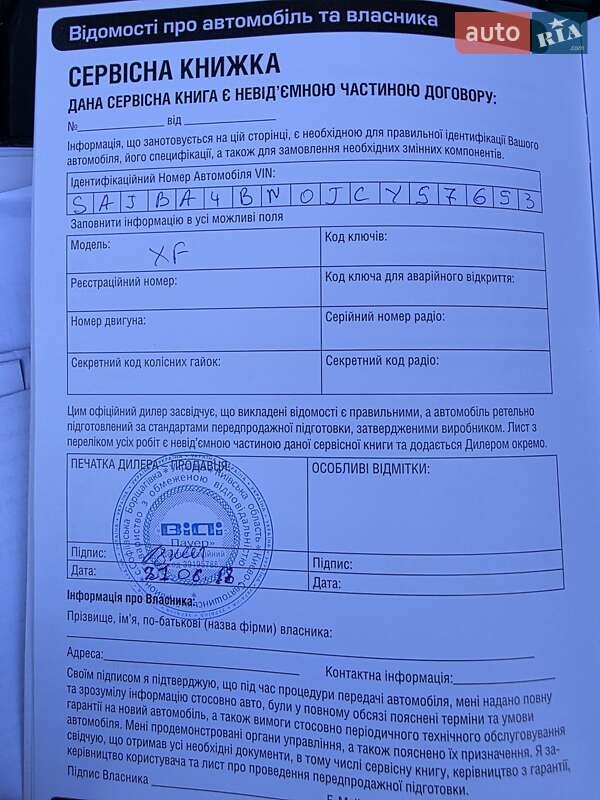 Відомості про автомобіль та власника
auto RIA .com
СЕРВІСНА КНИЖКА
ДАНА СЕРВІСНА КНИГА Є НЕВІД'ЄМНОЮ ЧАСТИНОЮ ДОГОВОРУ:
№ від
Інформація, що занотовується на цій сторінці, є необхідною для правильної ідентифікації Вашого
автомобіля, його специфікації, а також для замовлення необхідних змінних компонентів.
Ідентифікаційний Номер Автомобіля VIN:
SAJBA4BN0JCY57653
Заповнити інформацію в усі можливі поля
Модель: XF
Код ключів:
Реєстраційний номер:
Код ключа для аварійного відкриття:
Номер двигуна:
Серійний номер радіо:
Секретний код колісних гайок:
Секретний код радіо:
Цим офіційний дилер засвідчує, що викладені відомості є правильними, а автомобіль ретельно
підготовлений за стандартами передпродажної підготовки, затвердженими виробником. Лист з
переліком усіх робіт є невід'ємною частиною даної сервісної книги та додається Дилером окремо.
ПЕЧАТКА ДИЛЕРА – ПРОДАВЦЯ:
ОСОБЛИВІ ВІДМІТКИ:
ВіДі
Пауер»
Підпис:
Підпис:
Дата: 27.06.18
Дата:
Інформація про Власника:
Прізвище, ім'я, по-батькові (назва фірми) власника:
Адреса:
Контактна інформація:
Своїм підписом я підтверджую, що під час процедури передачі автомобіля, мені надано повну
та зрозумілу інформацію стосовно авто, були у повному обсязі пояснені терміни та умови
гарантії на новий автомобіль, а також вимоги стосовно періодичного технічного обслуговування
автомобіля. Мені продемонстровані органи управління, а також пояснено їх призначення. Я за-
свідчую, що отримав усі необхідні документи, в тому числі сервісну книгу, керівництво з гарантії,
керівництво користувача та лист про проведення передпродажної підготовки.
Підпис Власника